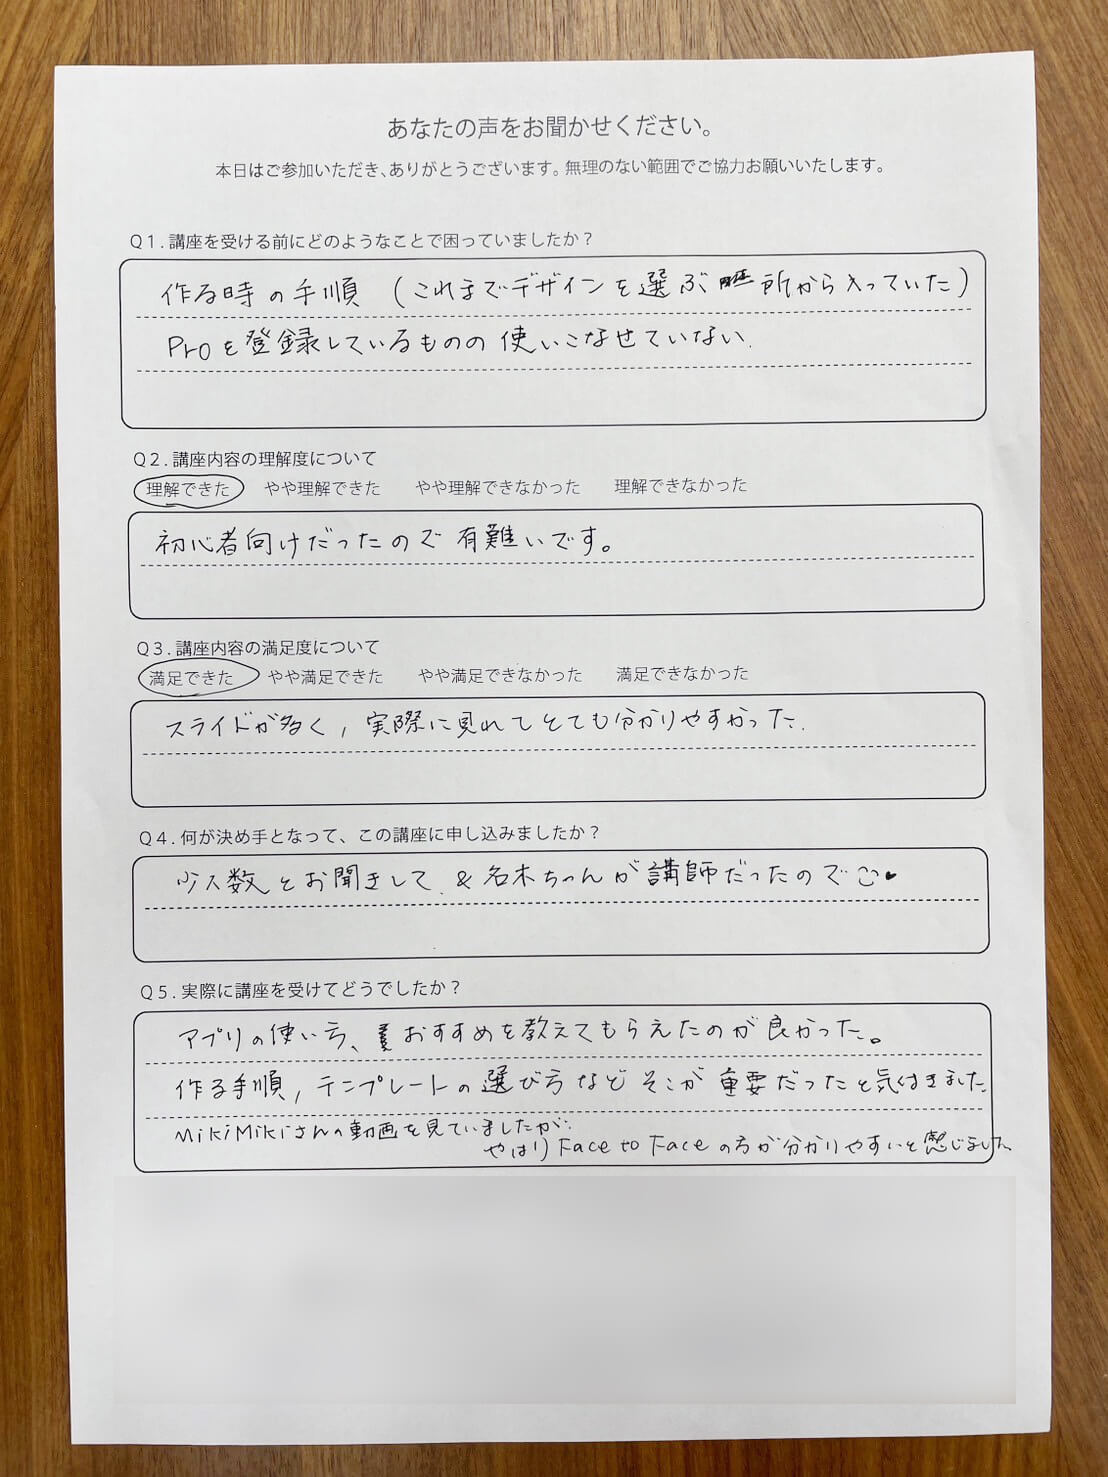 あなたの声をお聞かせください。
本日はご参加いただき、ありがとうございます。無理のない範囲でご協力お願いいたします。
Q1.講座を受ける前にどのようなことで困っていましたか?
作る時の手順 (これまでデザインを選ぶ所から入っていた)
Proを登録しているものの使いこなせていない.
Q2.講座内容の理解度について
理解できた やや理解できた やや理解できなかった 理解できなかった
初心者向けだったので有難いです。
Q3.講座内容の満足度について
満足できた やや満足できた やや満足できなかった 満足できなかった
スライドが多く, 実際に見れてとても分かりやすかった.
Q4.何が決め手となって、この講座に申し込みましたか?
少人数とお聞きして & 名木ちゃんが講師だったので
Q5.実際に講座を受けてどうでしたか?
アプリの使い方、おすすめを教えてもらえたのが良かった。
作る手順, テンプレートの選び方などそこが重要だったと気付きました.
MikiMikiさんの動画を見ていましたが.
やはりFace to Faceの方が分かりやすいと感じました